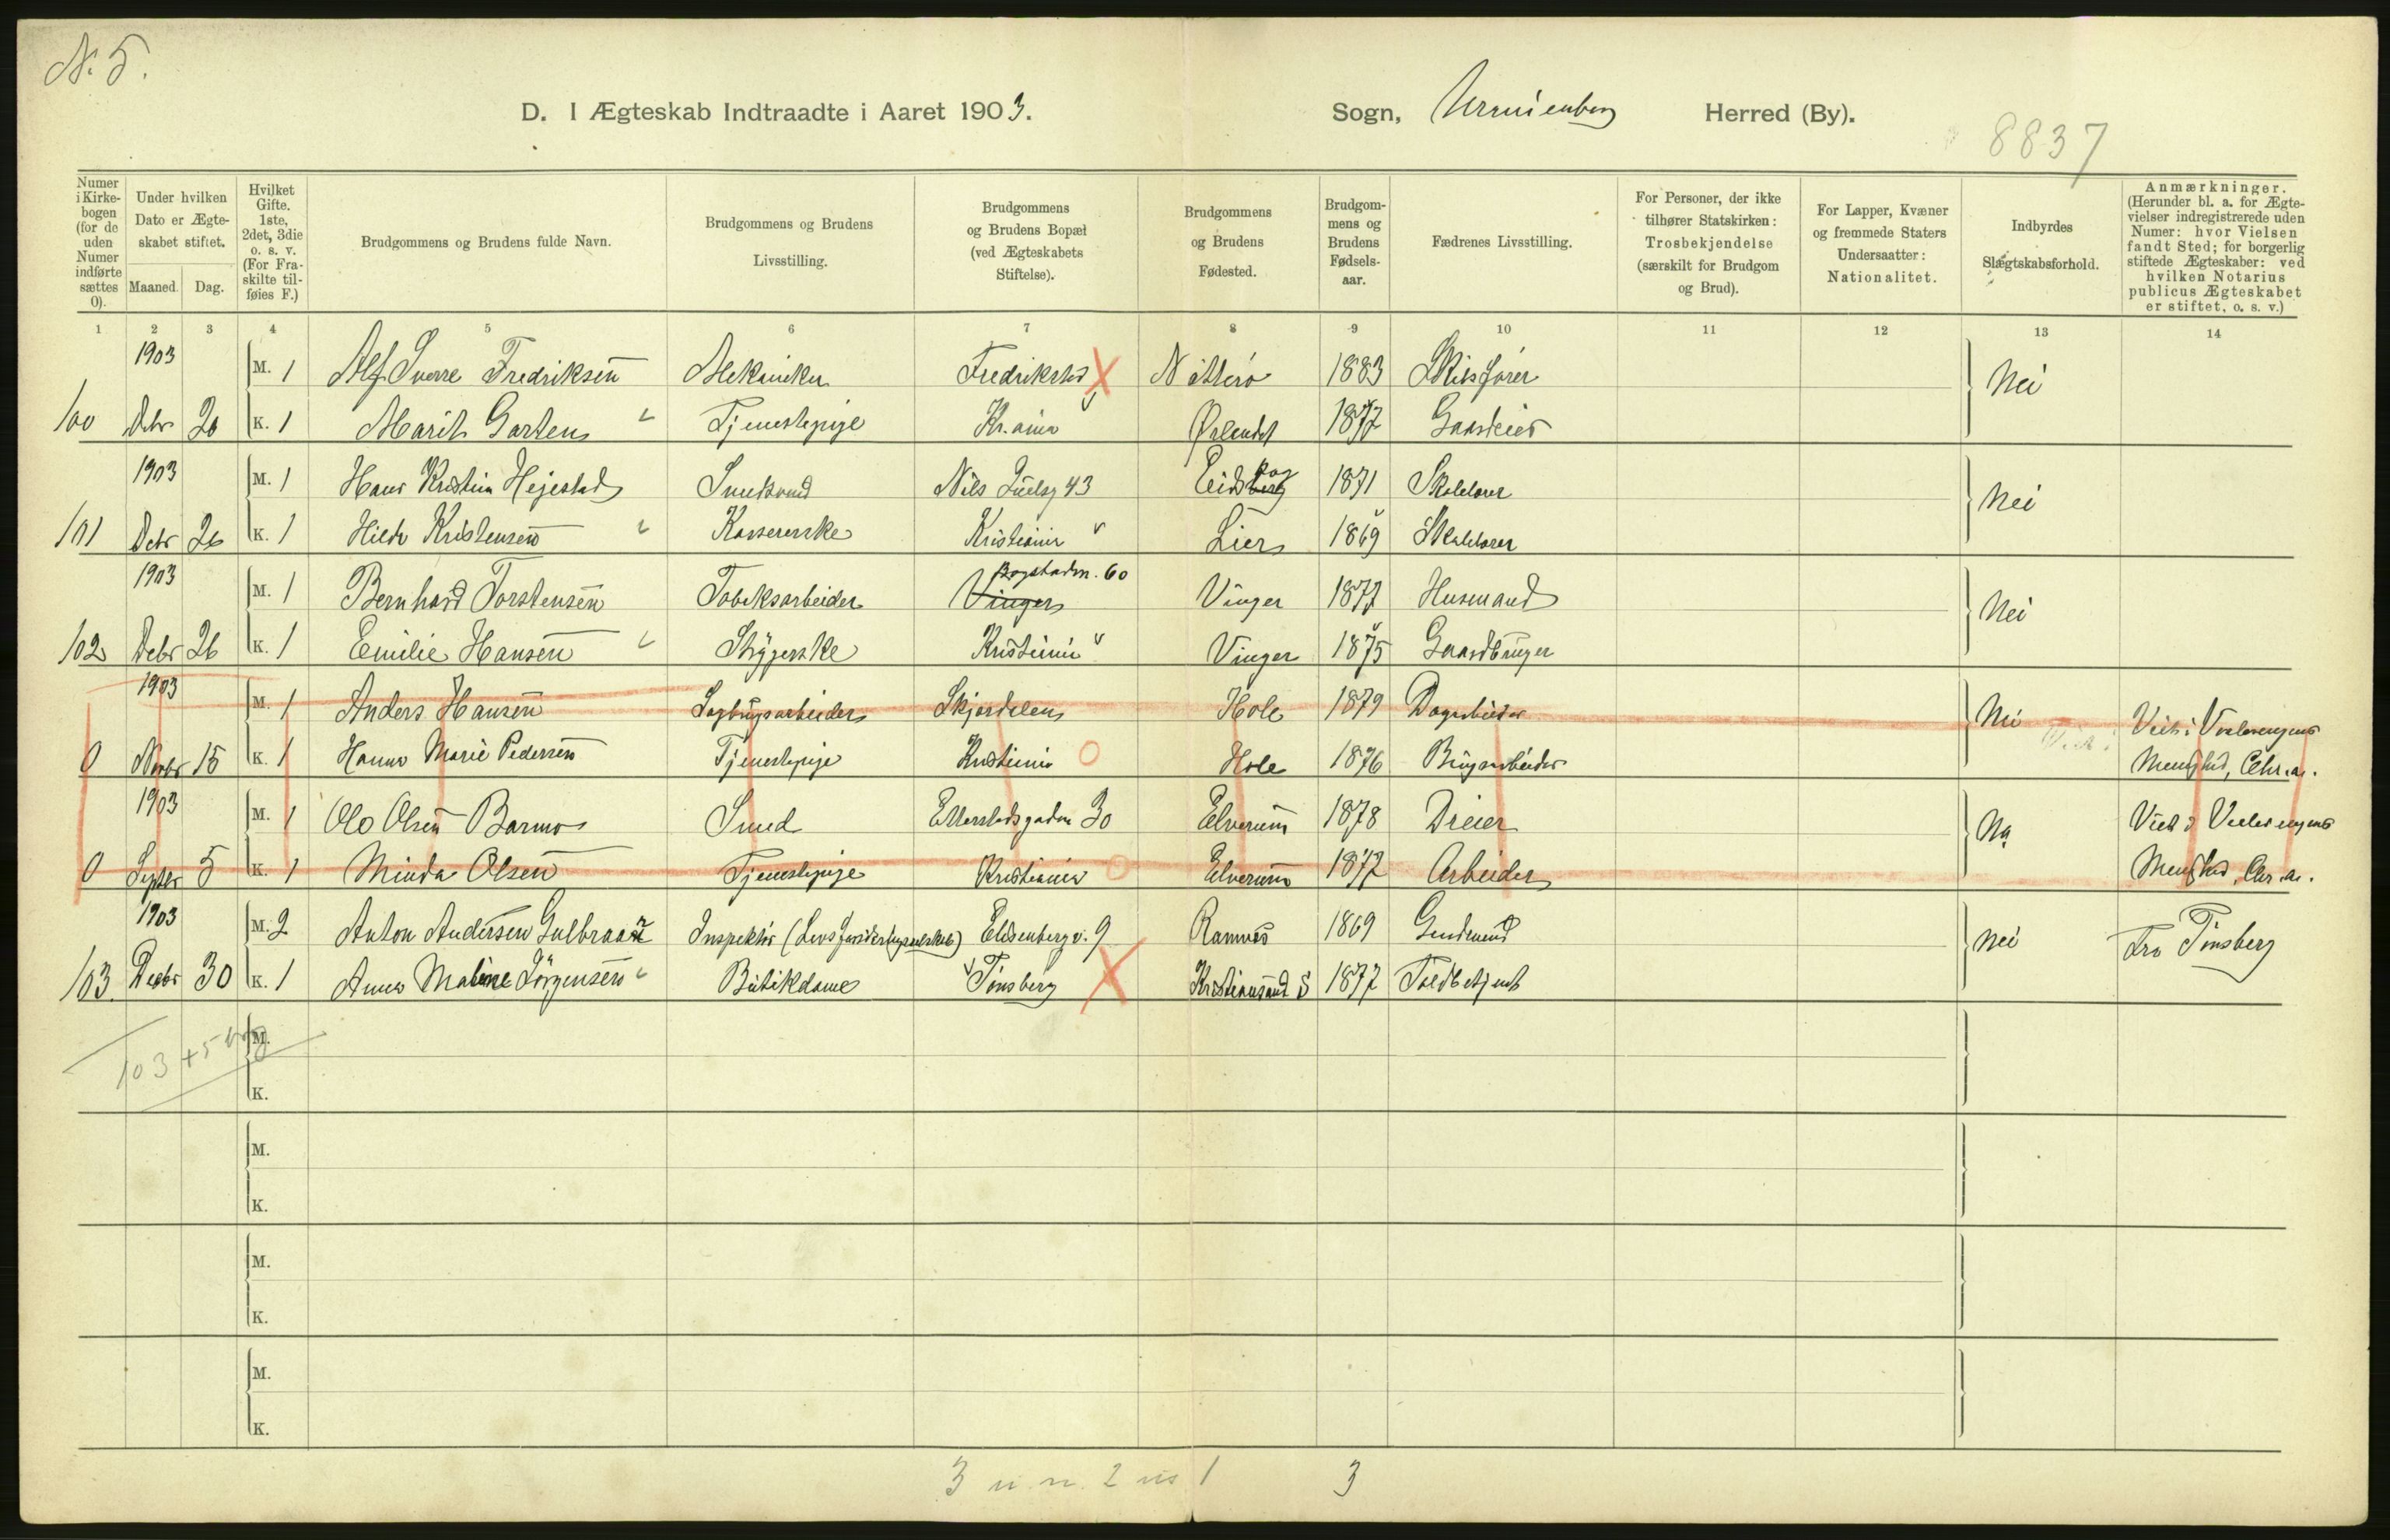 N. 5.
D. I Ægteskab Indtraadte i Aaret 1903. Sogn, Uranienborg Herred (By).
8837
Numer i Kirkebogen (for de uden Numer indførte sættes 0).
Under hvilken Dato er Ægteskabet stiftet. Maaned. Dag.
Hvilket Gifte. 1ste, 2det, 3die o. s. v. (For Fraskilte tilføies F.)
Brudgommens og Brudens fulde Navn.
Brudgommens og Brudens Livsstilling.
Brudgommens og Brudens Bopæl (ved Ægteskabets Stiftelse).
Brudgommens og Brudens Fødested.
Brudgommens og Brudens Fødselsaar.
Fædrenes Livsstilling.
For Personer, der ikke tilhører Statskirken: Trosbekjendelse (særskilt for Brudgom og Brud).
For Lapper, Kvæner og fremmede Staters Undersaatter: Nationalitet.
Indbyrdes Slægtskabsforhold.
Anmærkninger. (Herunder bl. a. for Ægtevielser indregistrerede uden Numer: hvor Vielsen fandt Sted; for borgerlig stiftede Ægteskaber: ved hvilken Notarius publicus Ægteskabet er stiftet, o. s. v.)
1 2 3 4 5 6 7 8 9 10 11 12 13 14
1903 M. 1 Alf Sverre Fredriksen Mekaniker Fredrikstad X Nötterö 1883 Skibsfører Nei
100 Debr 20 K. 1 Marit Garten Tjenestepige Kr.ania Ørlandet 1877 Gaardeier
1903 M. 1 Hans Kristian Hejestad Snedkersvend Nils Juelsg 43 Eidskog 1871 Skolelærer Nei
101 Debr 26 K. 1 Hilda Kristensen Kassererske Kristiania Lier 1869 Skolelærer
1903 M. 1 Bernhard Torstensen Tobaksarbeider Bogstadvn. 60 Vinger Vinger 1877 Husmand Nei
102 Debr 26 K. 1 Emilie Hansen Strygerske Kristiania Vinger 1875 Gaardbruger
1903 M. 1 Anders Hansen Sagbrugsarbeider Skjærdalen Hole 1879 Dagarbeider Nei Viet i Vaalerengens
0 Novbr 15 K. 1 Hanna Marie Pedersen Tjenestepige Kristiania O Hole 1876 Brugsarbeider Menighed, Chr.a.
1903 M. 1 Ole Olsen Barmo Smed Etterstadsgaden 30 Elverum 1878 Dreier Nei Viet i Vaalerengens
0 Septbr 5 K. 1 Minda Olsen Tjenestepige Kristiania O Elverum 1877 Arbeider Menighed, Chr.a.
1903 M. 2 Anton Andersen Gulbraar Inspektör (Livsforsikringsselskab) Eilsenbergv. 9 Ramnæs 1869 Gaardmand Nei Fra Tönsberg
103. Decbr 30 K. 1 Anna Maline Jörgensen Butikdame Tönsberg X Kristiansand S 1877 Toldbetjent
103 + 5
M.
K.
M.
K.
M.
K.
M.
K.
3 u.n. 2 1 3